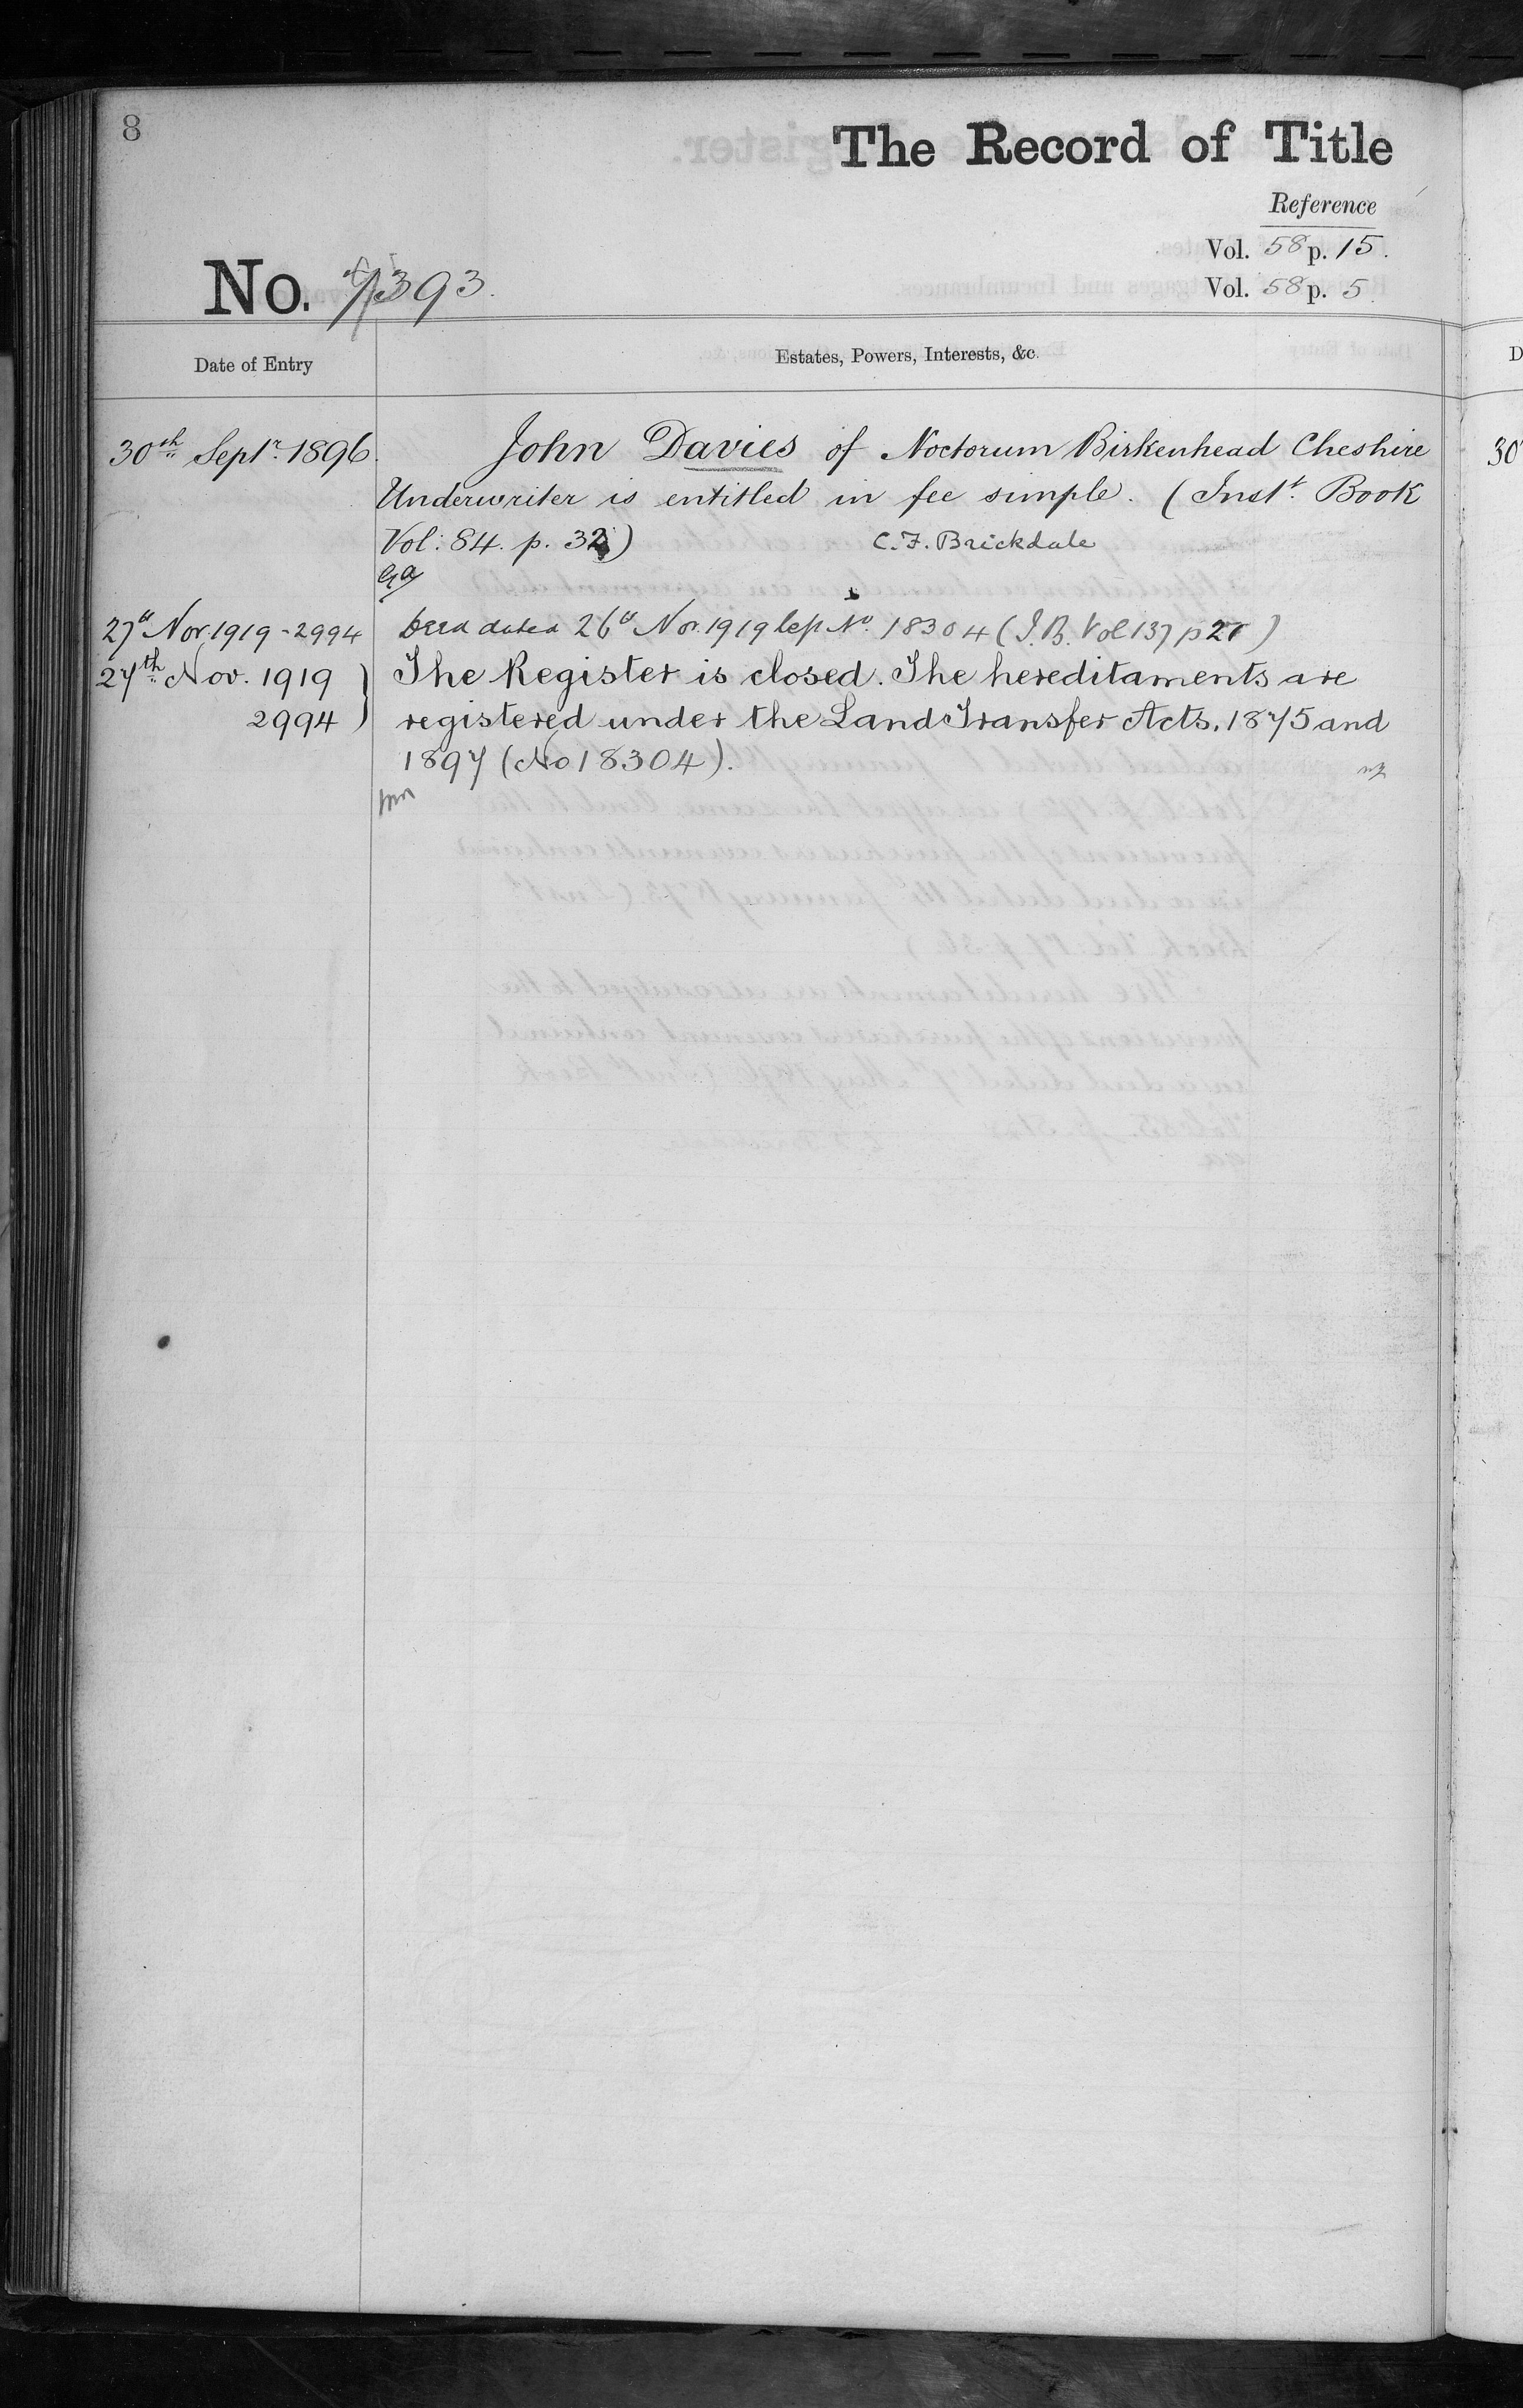 8
The Record of Title
Reference
Vol. 58 p. 15.
No. 393.
Vol. 58 p. 5
Date of Entry
Estates, Powers, Interests, &c.
30th Septr. 1896.
John Davies of Noctorum Birkenhead Cheshire
Underwriter is entitled in fee simple. (Instt. Book
Vol: 84. p. 32)
C.F. Brickdale
27th Nov. 1919 - 2994
Deed dated 26th Nov. 1919 No. 18304 (I.B. Vol 137 p
27th Nov. 1919
2994
The Register is closed. The hereditaments are
registered under the Land Transfer Acts, 1875 and
1897 (No 18304).
30
D